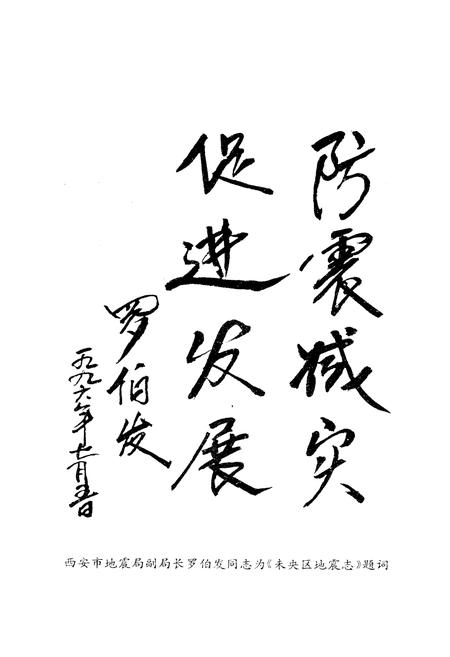 防震减灾
促进发展
罗伯发
一九九六年七月五日
西安市地震局副局长罗伯发同志为《未央区地震志》题词